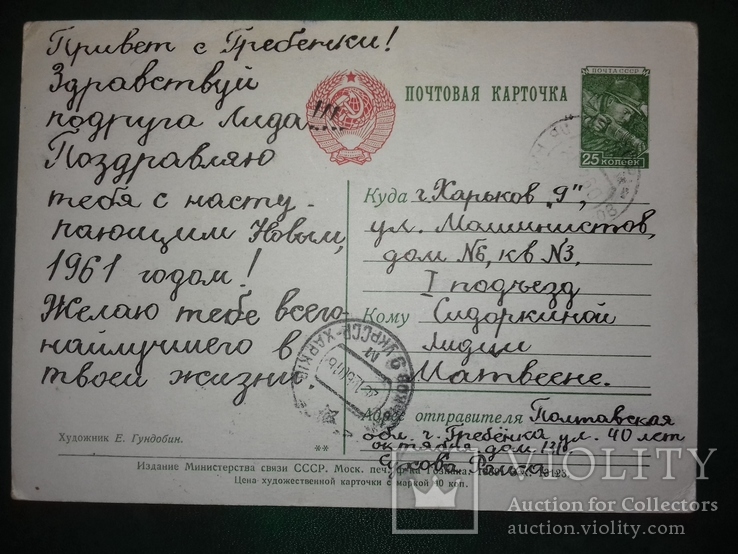 Привет с Гребенки!
Здравствуй
подруга Лида...!!!
Поздравляю
тебя с насту-
пающим Новым,
1961 годом!
Желаю тебе всего
наилучшего в
твоей жизни
Художник Е. Гундобин.
ПОЧТОВАЯ КАРТОЧКА
ПОЧТА СССР
25 КОПЕЕК
Куда г. Харьков „9",
ул. Машинистов,
дом №6, кв №3,
I подъезд
Кому Сидоркиной
Лидии
Матвеене.
УКРССР-ХАРКІВ
Адрес отправителя Полтавская
обл. г. Гребёнка ул. 40 лет
октября дом
**
Издание Министерства связи СССР. Моск. печ. ф-ка Гознака.
Цена художественной карточки с маркой 40 коп.
VIOLITY
Auction for Collectors
auction.violity.com